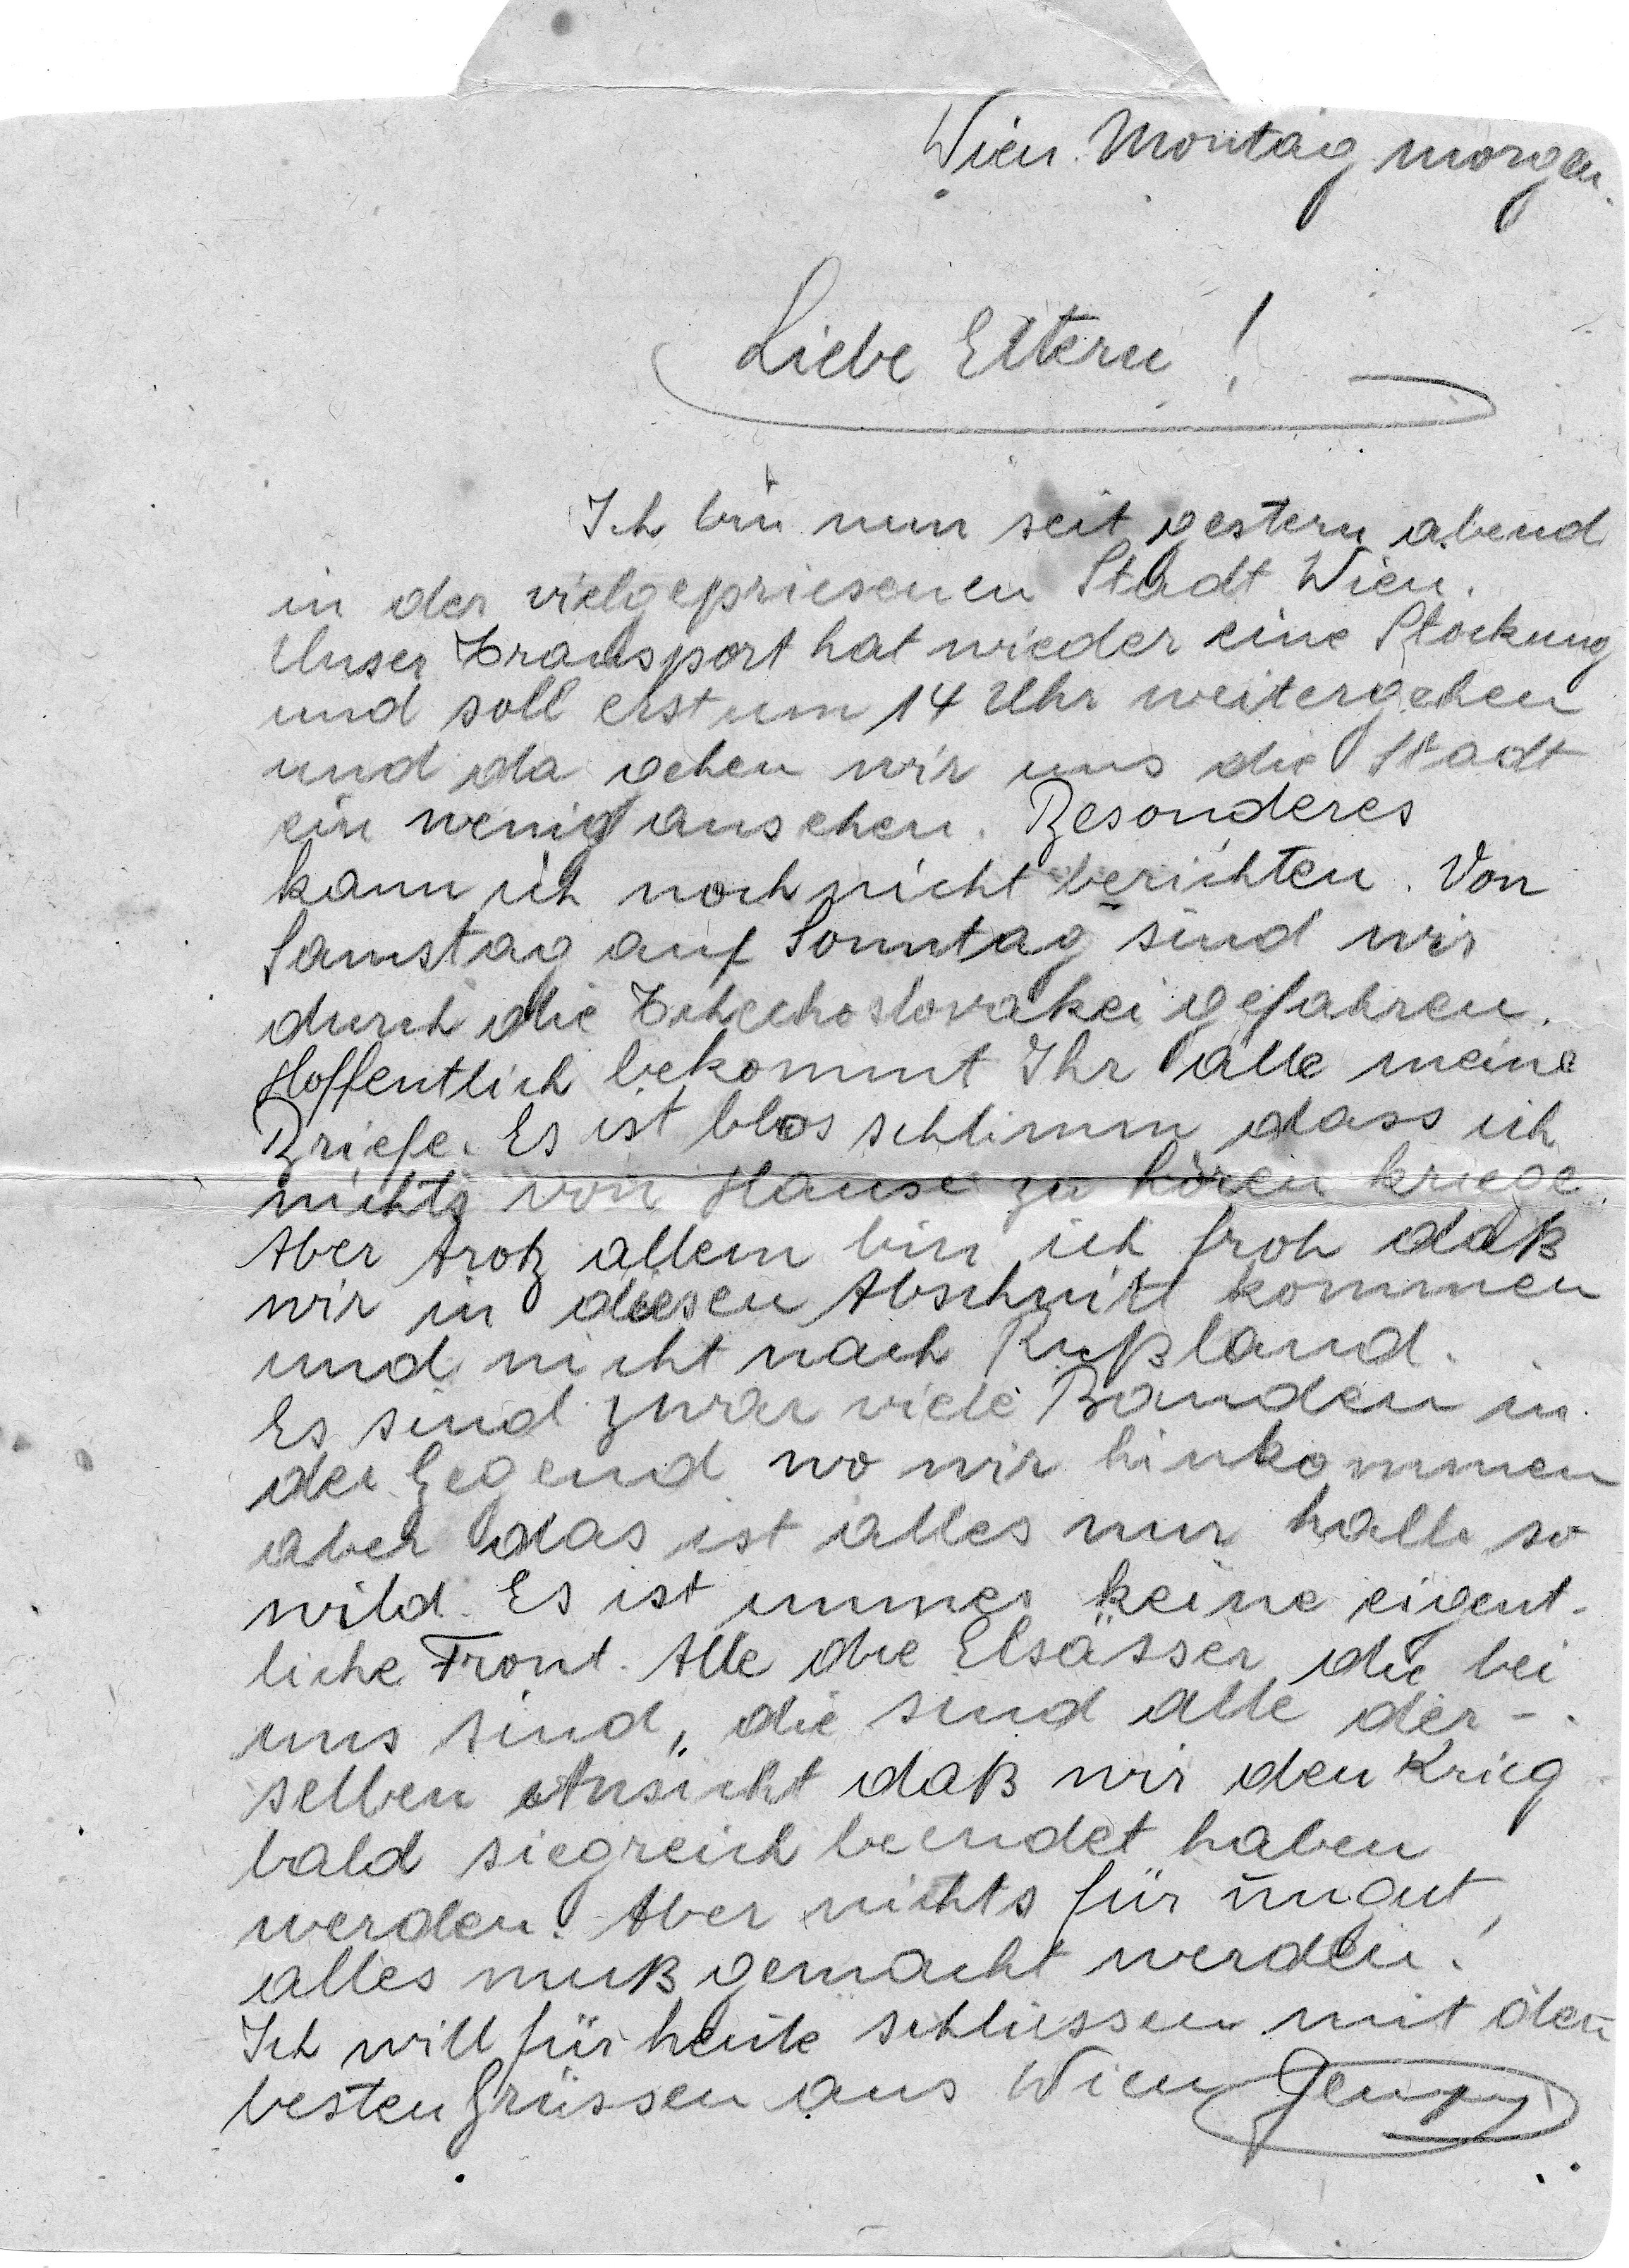 Wien. Montag morgen.
Liebe Eltern!
Ich bin nun seit gestern abend
in der vielgepriesenen Stadt Wien.
Unser Transport hat wieder eine Stockung
und soll erst um 14 Uhr weitergehen
und da gehen wir uns die Stadt
ein wenig ansehen. Besonderes
kann ich noch nicht berichten. Von
Samstag auf Sonntag sind wir
durch die Tchechoslovakei gefahren.
Hoffentlich bekommt Ihr alle meine
Briefe. Es ist blos schlimm dass ich
nichts von Hause zu hören kriege.
Aber trotz allem bin ich froh daß
wir in diesen Abschnitt kommen
und nicht nach Rußland.
Es sind zwar viele Banden in
der Gegend wo wir hinkommen
aber das ist alles nur halb so
wild. Es ist immer keine eigent-
liche Front. Alle die Elsässer die bei
uns sind, die sind alle der-
selben Ansicht daß wir den Krieg
bald siegreich beendet haben
werden. Aber nichts für ungut,
alles muß gemacht werden!
Ich will für heute schliessen mit den
besten Grüssen aus Wien